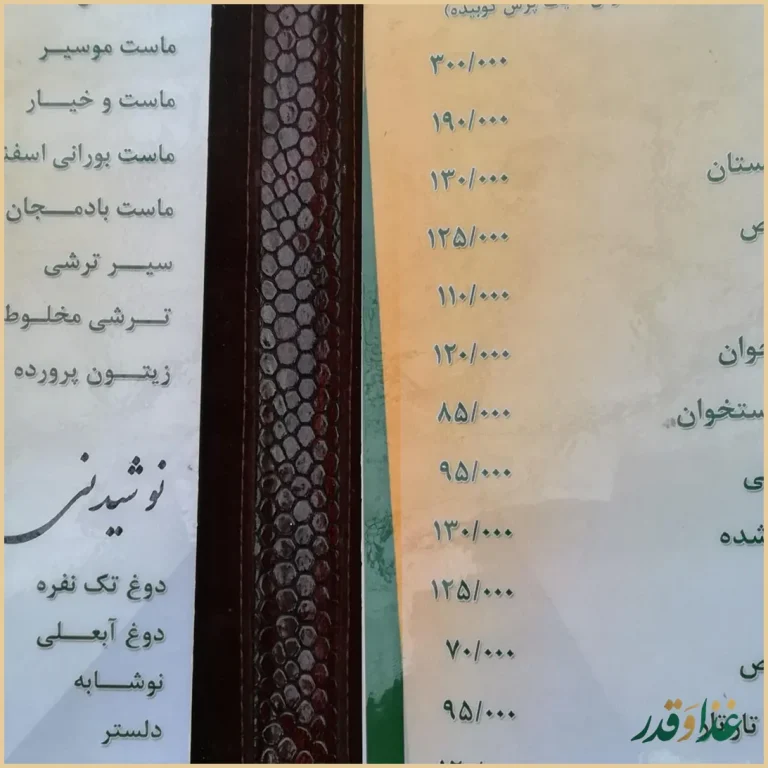 پرس کوبیده)
۳۰۰/۰۰۰
۱۹۰/۰۰۰
ستان ۱۳۰/۰۰۰
ص ۱۲۵/۰۰۰
۱۱۰/۰۰۰
خوان ۱۲۰/۰۰۰
ستخوان ۸۵/۰۰۰
ی ۹۵/۰۰۰
شده ۱۳۰/۰۰۰
۱۲۵/۰۰۰
ص ۷۰/۰۰۰
۹۵/۰۰۰
ماست موسیر
ماست و خیار
ماست بورانی اسفن
ماست بادمجان
سیر ترشی
ترشی مخلوط
زیتون پرورده
نوشیدنی
دوغ تک نفره
دوغ آبعلی
نوشابه
دلستر
غذا و قدر